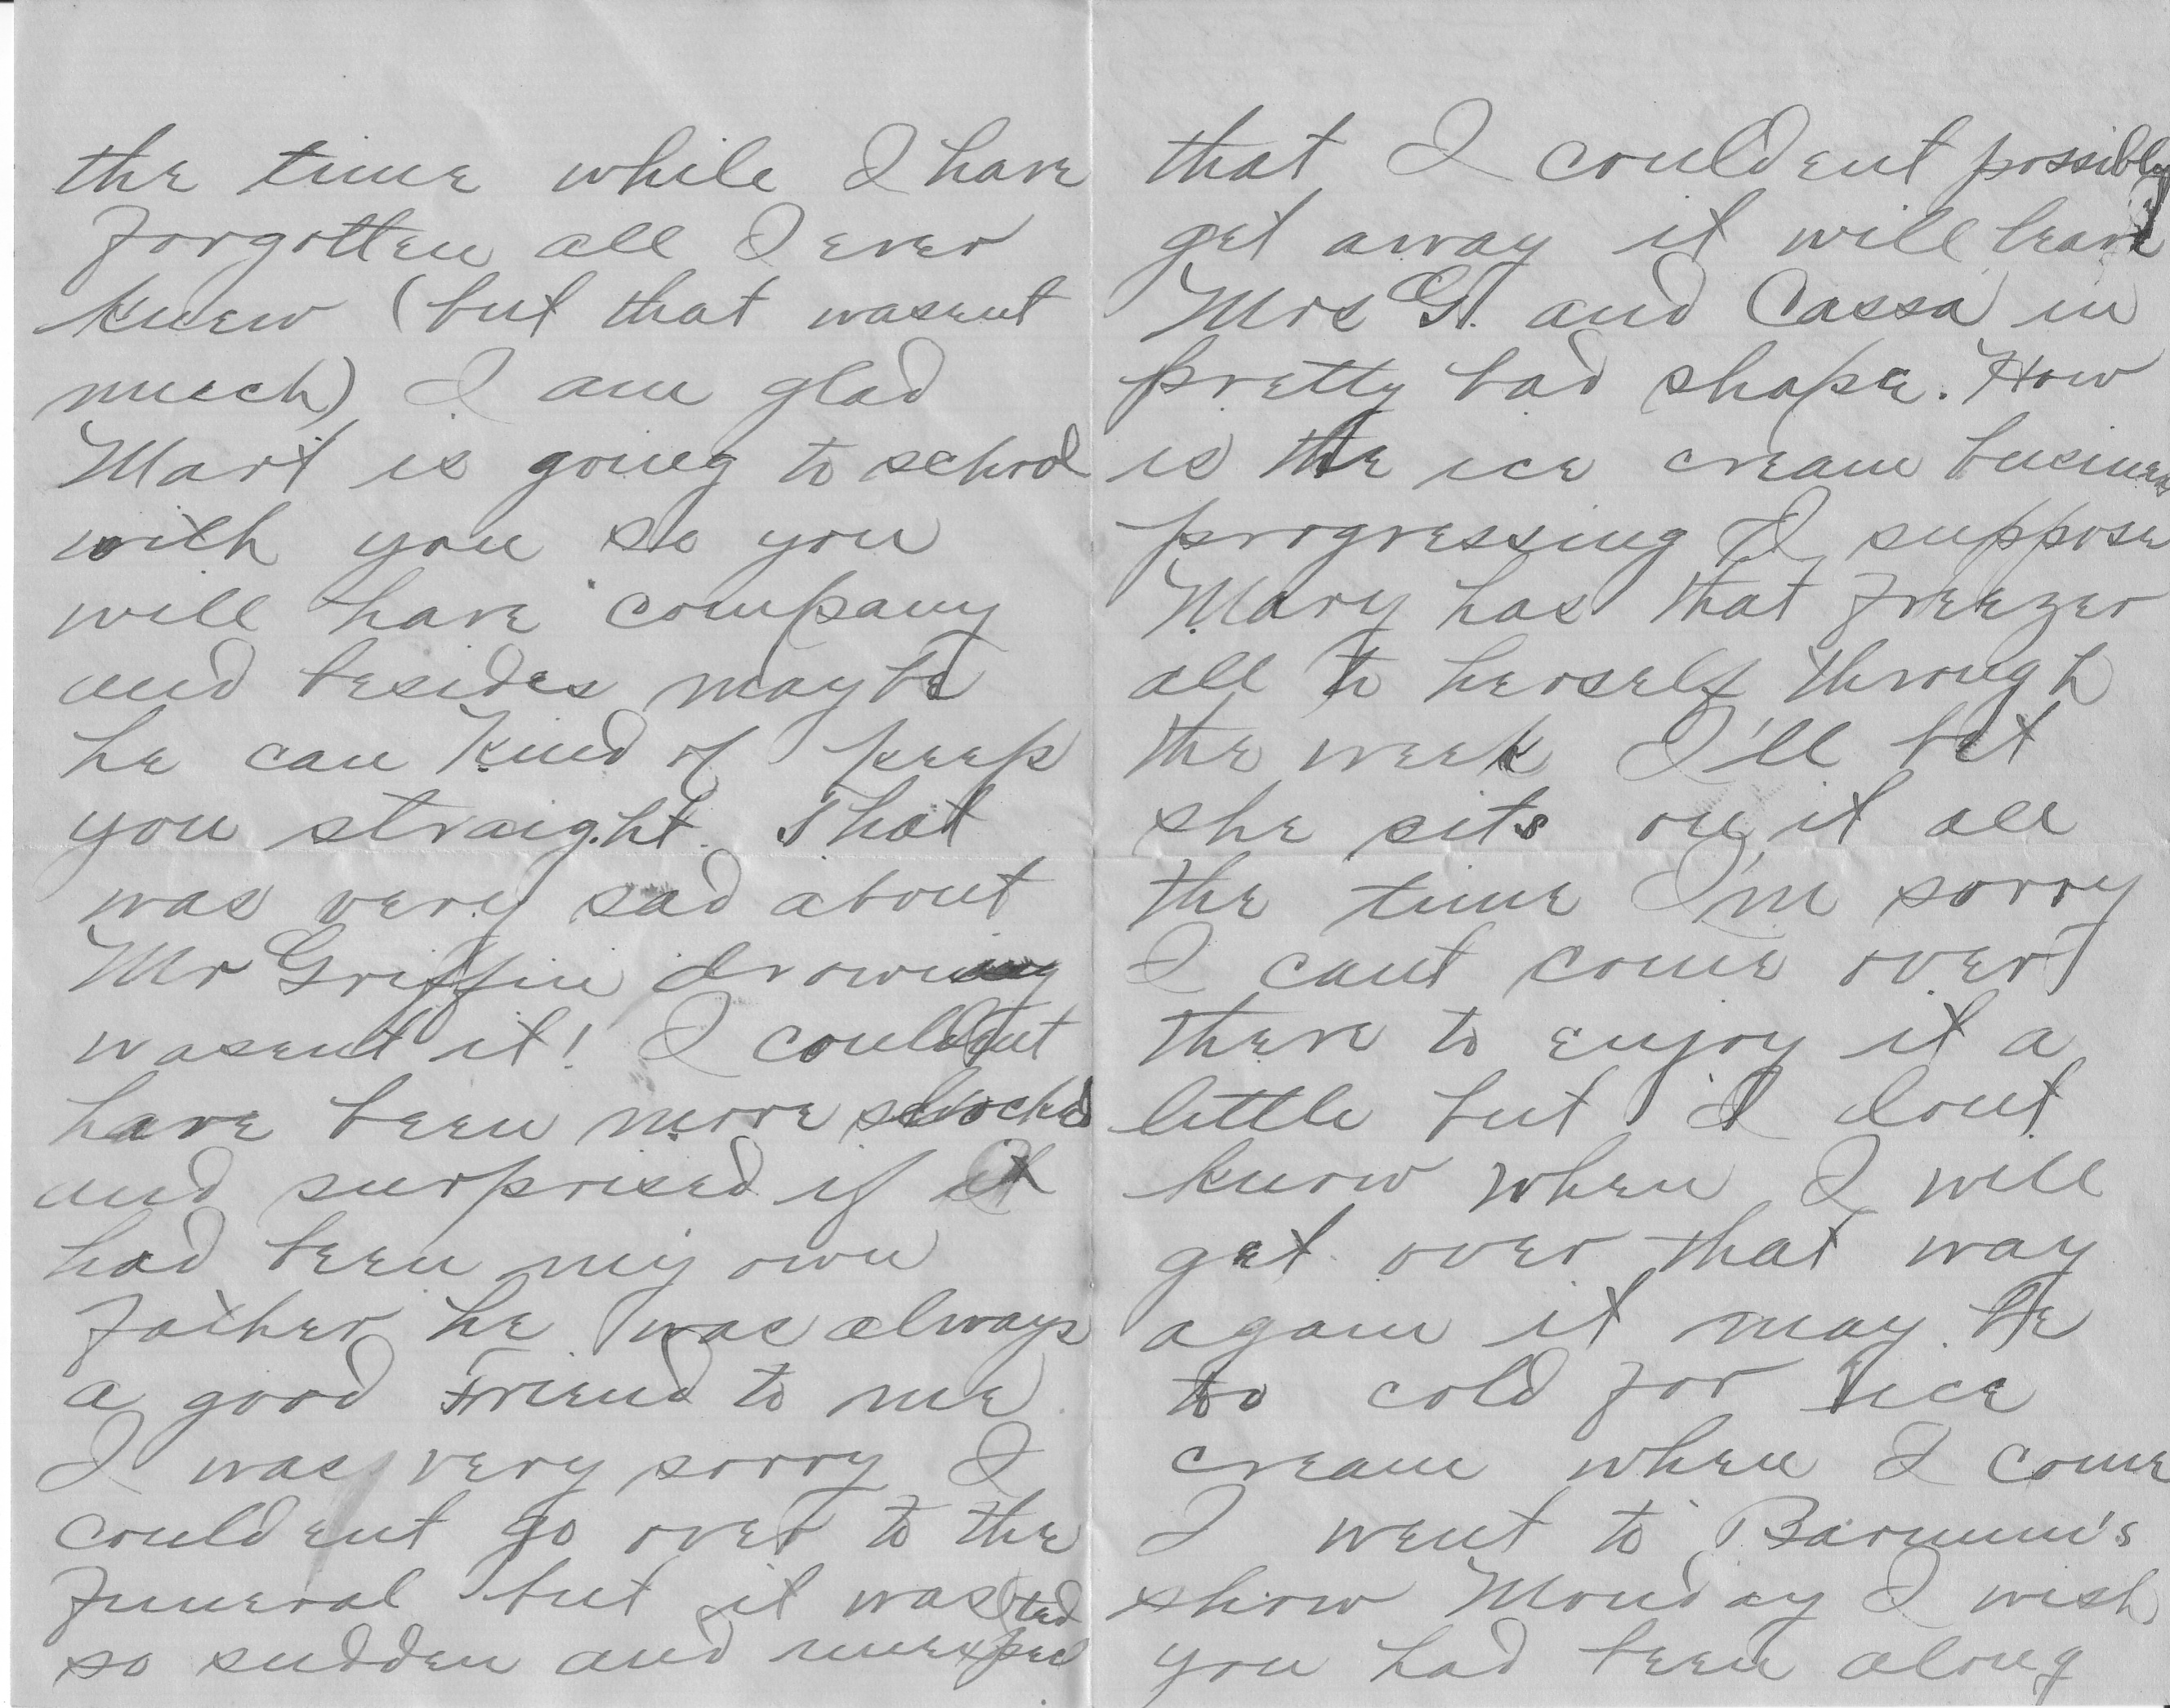 the time while I have
forgotten all I ever
knew (but that wasent
much) I am glad
Mart is going to school
with you so you
will have company
and besides maybe
he can kind of keep
you straight. That
was very sad about
Mr Griffin drowning
wasent it! I couldent
have been more shocked
and surprised if it
had been my own
father he was always
a good Friend to me
I was very sorry I
couldent go over to the
funeral but it was
so sudden and unexpected
that I couldent possibly
get away it will leave
Mrs G. and Cassa in
pretty bad shape. How
is the ice cream business
progressing I suppose
Mary has that freezer
all to herself through
the week I'll bet
she sits on it all
the time I'm sorry
I cant come over
there to enjoy it a
little but I dont
know when I will
get over that way
again it may be
too cold for ice
cream when I come
I went to Barnum's
show Monday I wish
you had been along